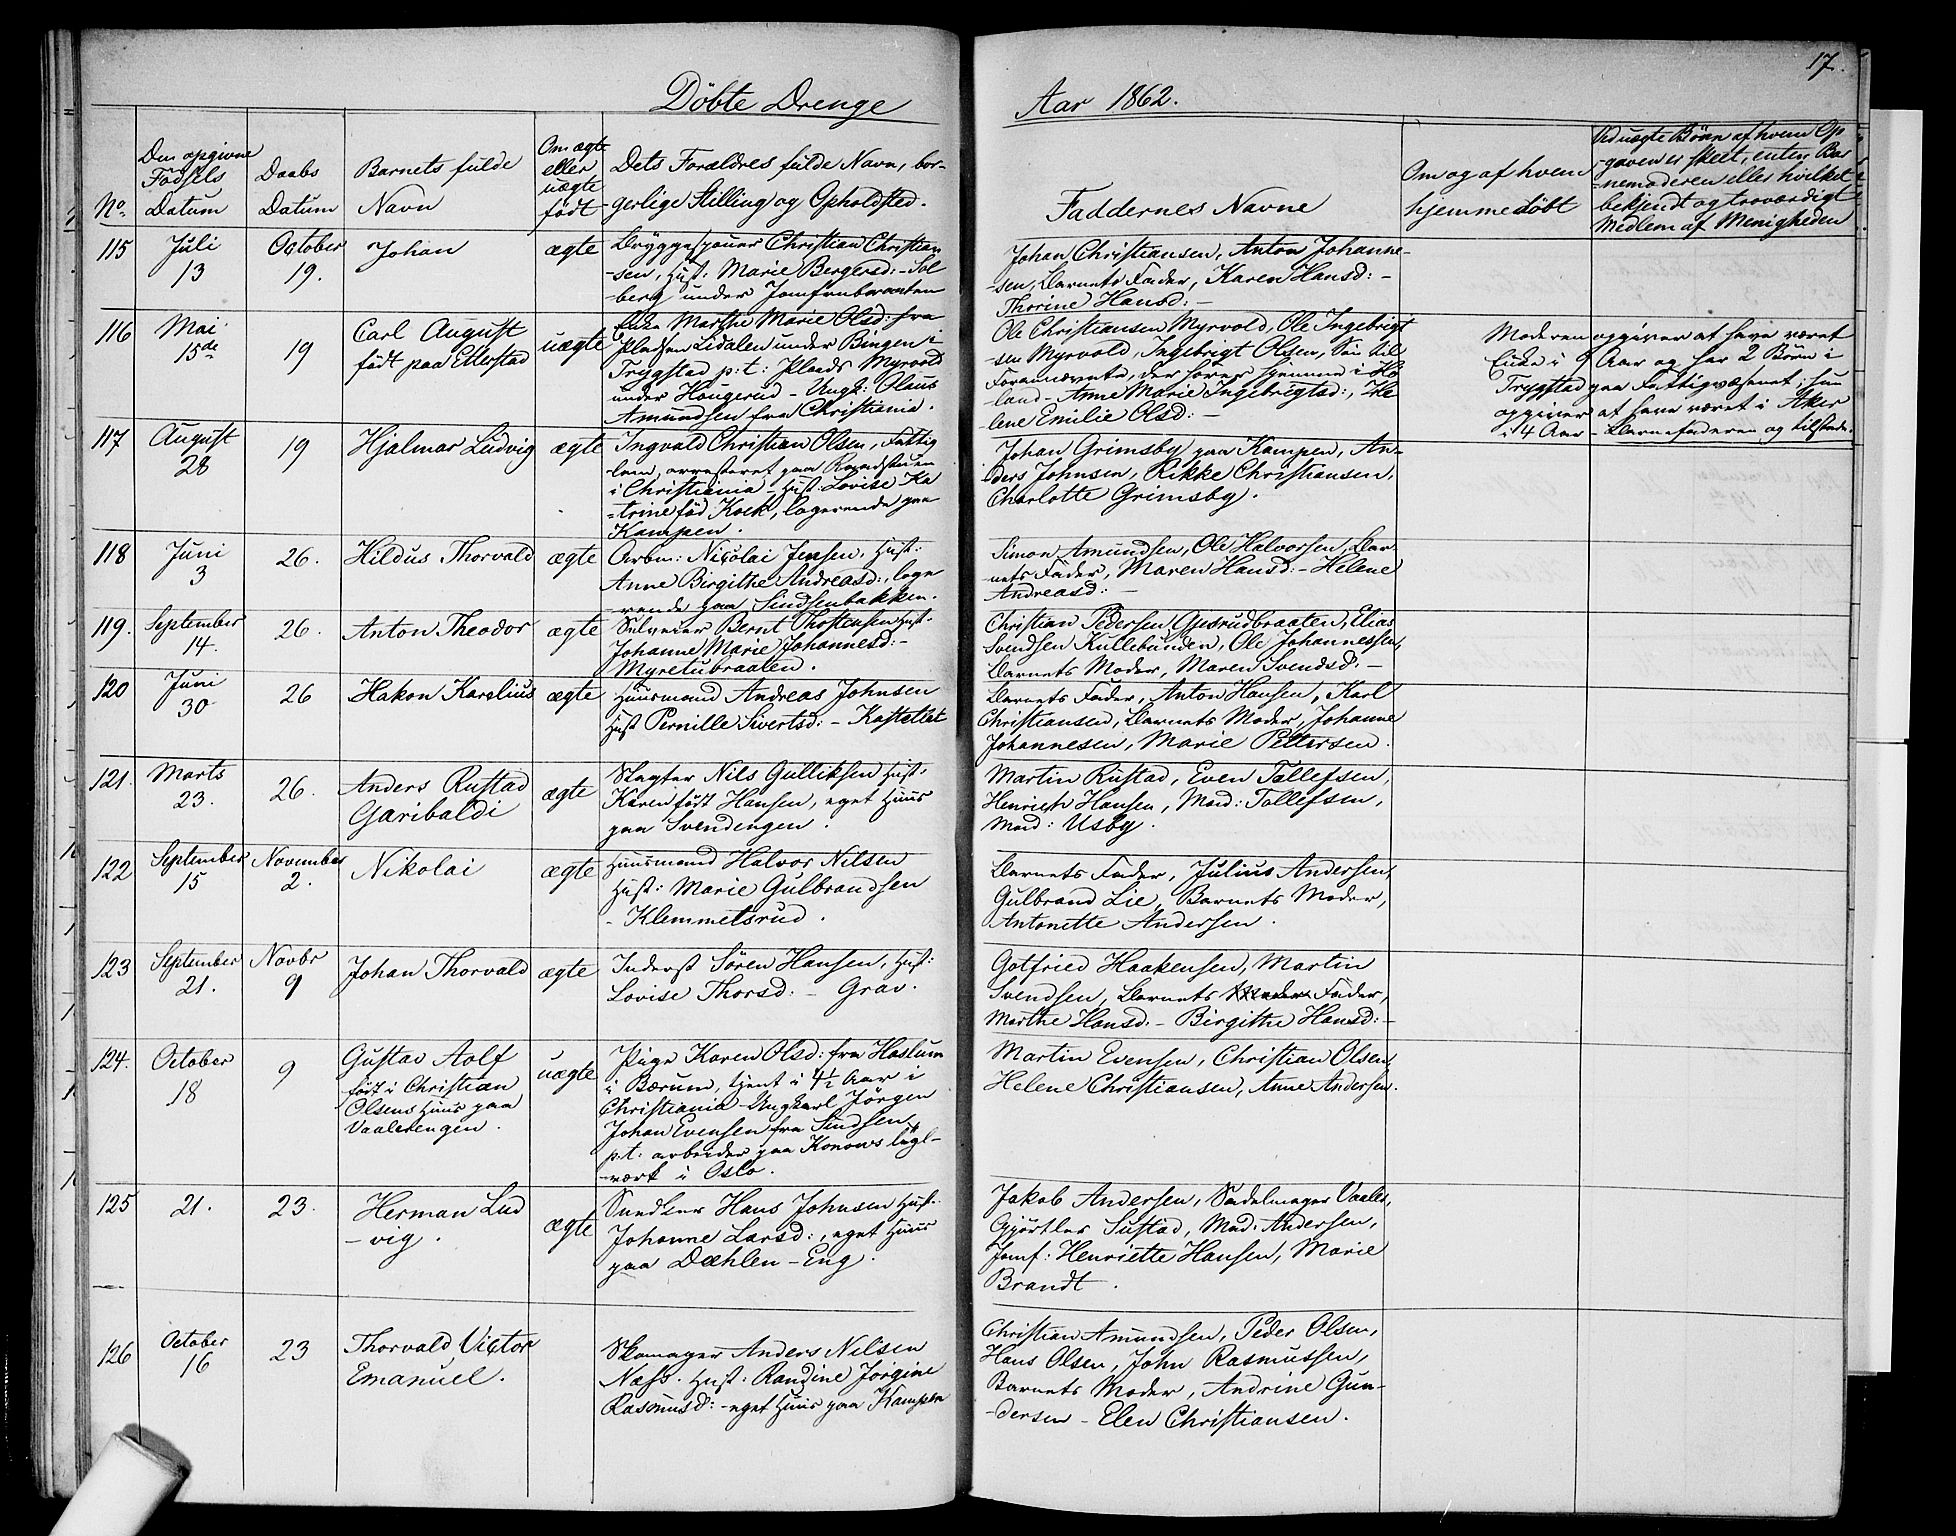 Döbte Drenge
Aar 1862.
17.
No.
Den opgivne
Födsels
Datum
Daabs
Datum
Barnets fulde
Navn
Om ægte
eller
uægte
födt
Dets Forældres fulde Navn, bor-
gerlige Stilling og Opholdsted.
Faddernes Navne
Om og af hvem
hjemmedöbt
Ved uægte Börn af hvem Op
-gaven er skeet, enten Bar
-nemoderen eller hvilket
bekjendt og troværdigt
Medlem af Menigheden
115
Juli
13
October
19.
Johan
ægte
Bryggespouer Christian Christian
-sen, Hust: Marie Bergersd: - Sol
-berg under Jomfrubraaten
Johan Christiansen, Anton Johanne-
-sen, Barnets Fader, Karen Hansd: -
Thorine Hansd: -
116
Mai
15de
19
Carl August
födt paa Etterstad
uægte
Enke Marthe Marie Olsd: fra
Pladsen Lidalen under Bingen i
Trygstad p:t: Plads Myrvold
under Hougerud - Ungk: Olaus
Amundsen fra Christiania.
Ole Christiansen Myrvold, Ole Ingebrigt
-sen Myrvold, Ingebrigt Olsen, Sön til
Forannævnte, der tjener i Ho
-land - Anne Marie Ingebrigtsd:, He
-lene Emilie Olsd: -
Moderen opgiver at have været
Enke i 9 Aar og har 2 Börn i
Trygstad paa Fattigvæsenet; hun
opgiver at have været i Aker
i 4 Aar - Barnefaderen og tilstede.
117
August
28
19
Hjalmar Ludvig
ægte
Ingvald Christian Olsen, Fattig
-lem, arresteret paa Raadstuen
i Christiania - Hust: Lovise Ka
-trine föd Kock, logerende paa
Kampen.
Johan Grimsby paa Kampen, An-
-ders Johnsen, Rikke Christiansen,
Charlotte Grimsby.
118
Juni
3
26.
Hildus Thorvald
ægte
Arbm: Nicolai Jensen, Hust:
Anne Birgithe Andreasd:, loge
-rende paa Sindsenbakken.
Simon Amundsen, Ole Halvorsen, Bar-
nets Fader, Maren Hansd: - Helene
Andreasd: -
119.
September
14.
26.
Anton Theodor
ægte
Selveier Bernt Thostensen Hust.
Johanne Marie Johannesd: -
Myretubraaten.
Christian Pedersen Gjusrudbraaten, Elias
Svendsen Kullebunden, Ole Johannessen,
Barnets Moder, Maren Svendsd: -
120
Juni
30
26
Hakon Karelius
ægte
Huusmand Andreas Johnsen
Hust Pernille Sivertsd: - Kastellet
Barnets Fader, Anton Hansen, Karl
Christiansen, Barnets Moder, Johanne
Johannesen, Marie Pettersen.
121.
Marts
23.
26.
Anders Rustad
Garibaldi
ægte
Slagter Nils Gulliksen Hust.
Karen födt Hansen, eget Huus
paa Svendengen.
Martin Rustad, Even Tollefsen,
Henrich Hansen, Mad: Tollefsen,
Mad: Usby.
122
September
15
November
2.
Nikolai
ægte
Huusmand Halvor Nilsen
Hust: Marie Gulbrandsen
- Klemmetsrud.
Barnets Fader, Julius Andersen,
Gulbrand Lie, Barnets Moder,
Antonette Andersen.
123
September
21.
Novbr
9
Johan Thorvald
ægte
Inderst Sören Hansen, Hust:
Lovise Thorsd: - Grav.
Gotfried Haakensen, Martin
Svendsen, Barnets Moder Fader,
Marthe Hansd. - Birgithe Hansd: -
124.
October
18
9
Gustav Aolf
födt i Christian
Olsens Huus paa
Vaalerengen.
uægte
Pige Karen Olsd: fra Haslum
i Bærum, tjent i 4½ Aar i
Christiania - Ungkarl Jörgen
Johan Evensen fra Sindsen,
p:t: arbeider paa Konows Tegl-
-værk i Oslo.
Martin Evensen, Christian Olsen,
Helene Christiansen, Anne Andersen.
125
21.
23.
Herman Lud
-vig.
ægte
Snedker Hans Johnsen Hust.
Johanne Larsd:, eget Huus
paa Dæhlen-Eng.
Jakob Andersen, Sadelmager Vaaler,
Gjörtler Sustad, Mad: Andersen,
Jomf: Henriette Hansen, Marie
Brandt.
126
October
16
23
Thorvald Victor
Emanuel.
Skomager Anders Nilsen
Næss. Hust: Randine Jörgine
Rasmusd: - eget Huus paa Kampen
Christian Amundsen, Peder Olsen,
Hans Olsen, John Rasmussen,
Barnets Moder, Andrine Gun-
-dersen - Elen Christiansen.